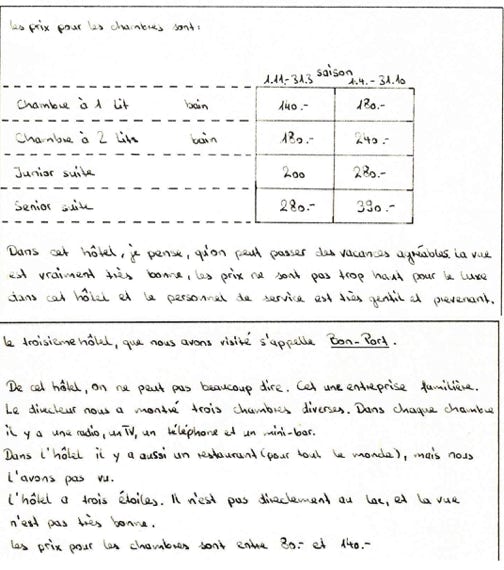 les prix pour les chambres sont:
saison
1.11.-31.3 1.4.-31.10
Chambre à 1 lit bain 140.- 180.-
Chambre à 2 lits bain 180.- 240.-
Junior suite 200 280.-
Senior suite 280.- 390.-
Dans cet hôtel, je pense, qu'on peut passer des vacances agréables. La vue
est vraiment très bonne, les prix ne sont pas trop haut pour le luxe
dans cet hôtel et le personnel de service est très gentil et prevenant.
le troisième hôtel, que nous avons visité s'appelle Bon-Port.
De cet hôtel, on ne peut pas beaucoup dire. Cet une entreprise familière.
Le directeur nous a montré trois chambres diverses. Dans chaque chambre
il y a une radio, un TV, un téléphone et un mini-bar.
Dans l'hôtel il y a aussi un restaurant (pour tout le monde), mais nous
l'avons pas vu.
L'hôtel a trois étoiles. Il n'est pas directement au lac, et la vue
n'est pas très bonne.
les prix pour les chambres sont entre 80.- et 140.-